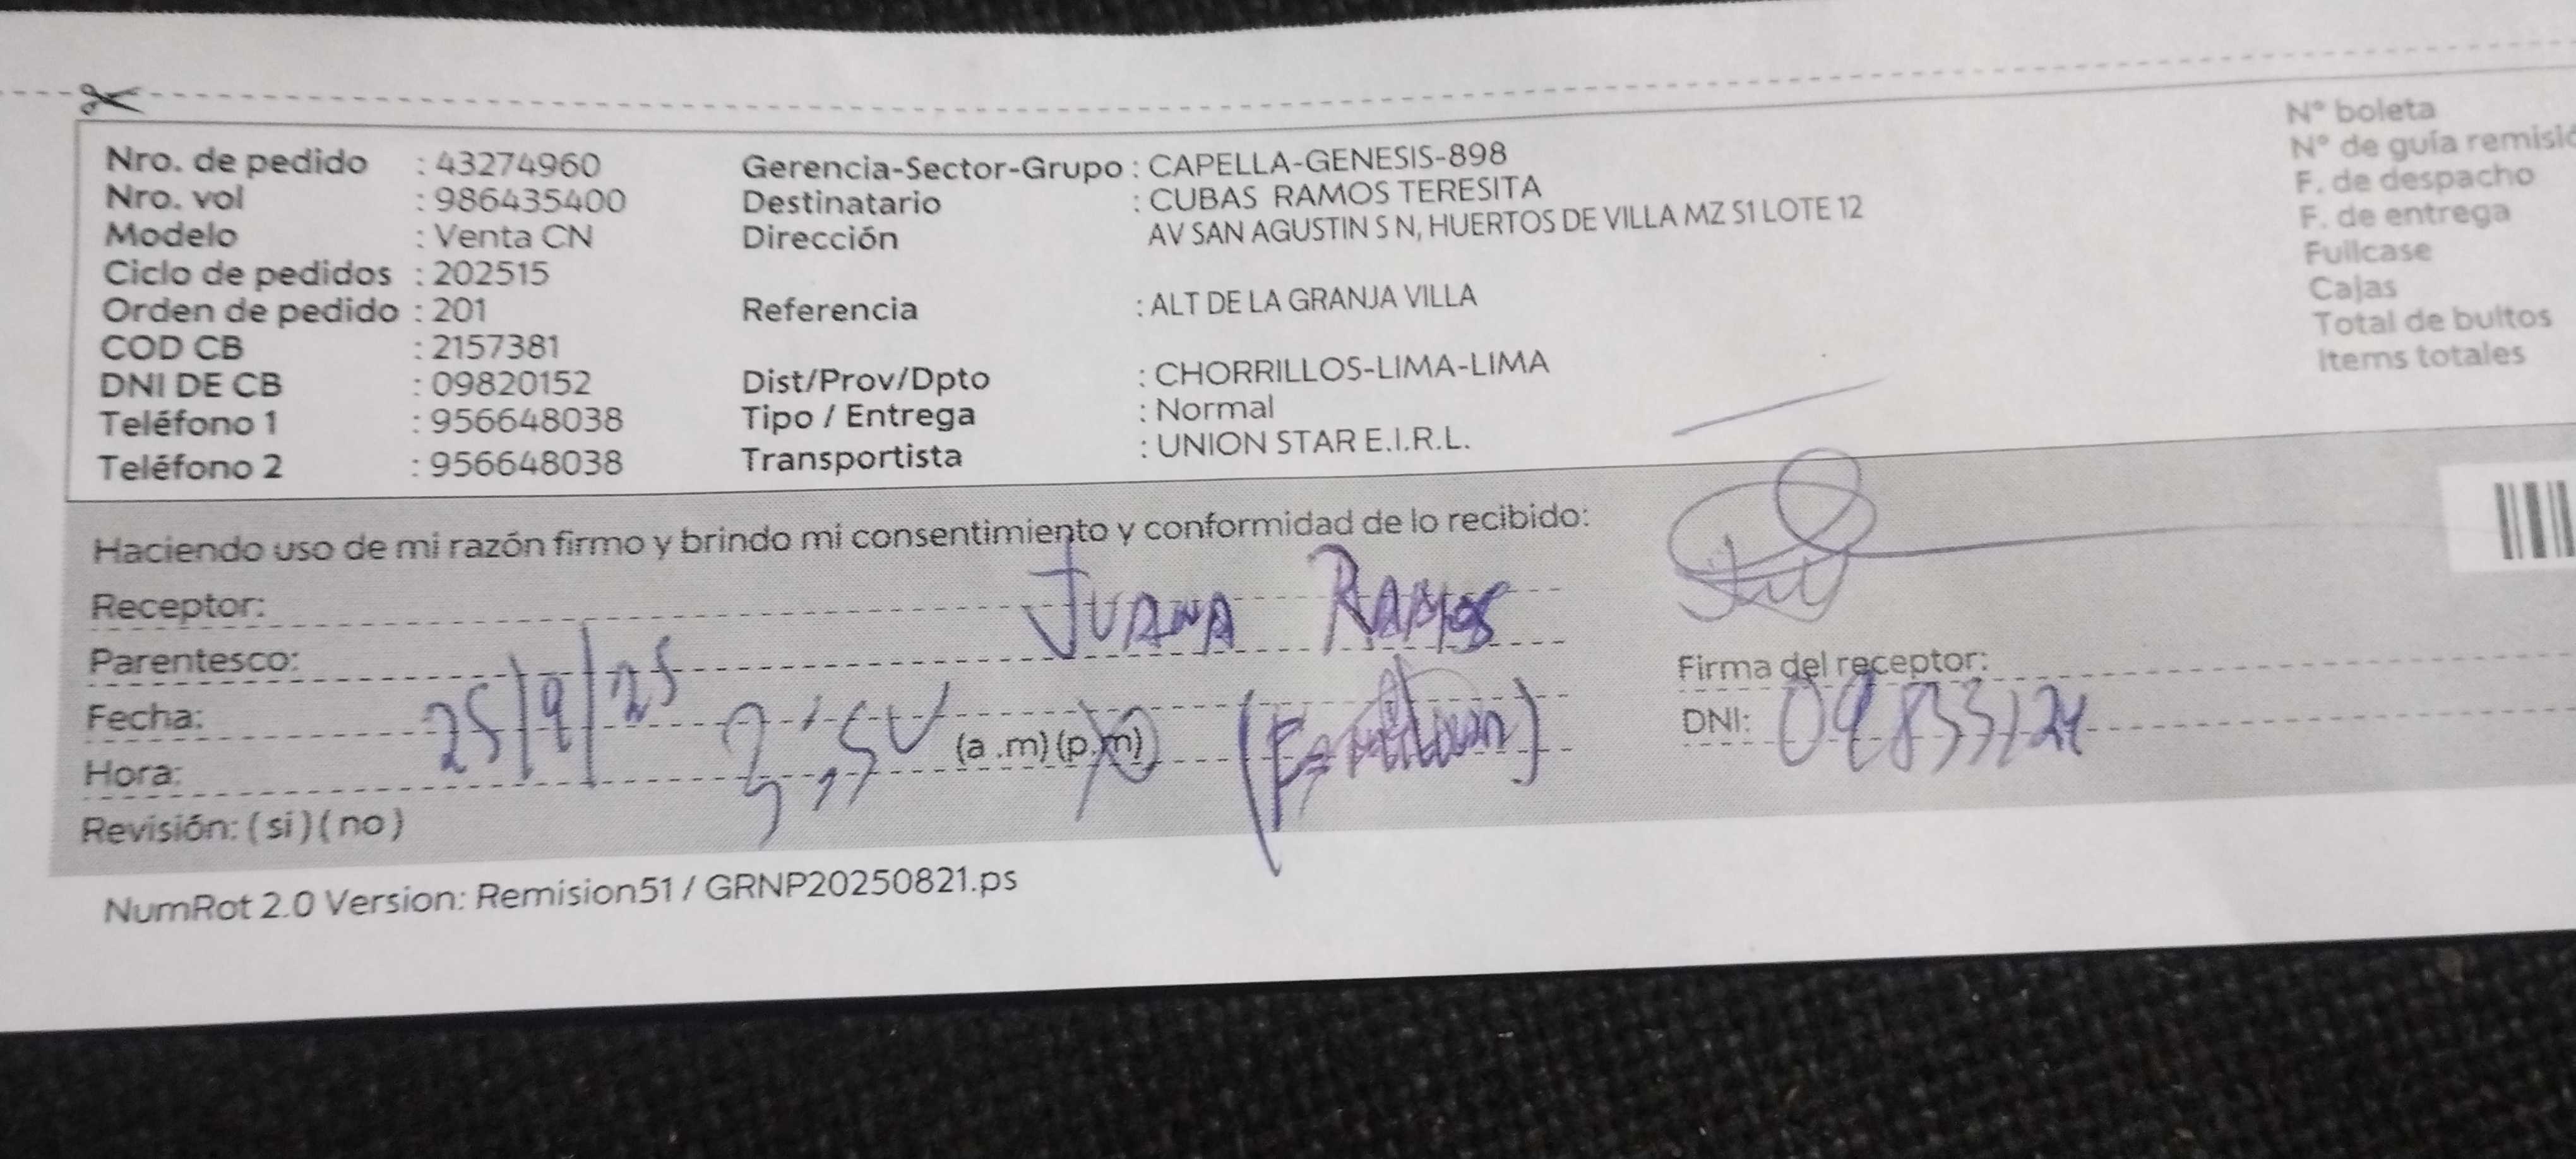 Nro. de pedido : 43274960
Nro. vol : 986435400
Modelo : Venta CN
Ciclo de pedidos : 202515
Orden de pedido : 201
COD CB : 2157381
DNI DE CB : 09820152
Teléfono 1 : 956648038
Teléfono 2 : 956648038
Gerencia-Sector-Grupo : CAPELLA-GENESIS-898
Destinatario : CUBAS RAMOS TERESITA
Dirección AV SAN AGUSTIN S N, HUERTOS DE VILLA MZ S1 LOTE 12
Referencia : ALT DE LA GRANJA VILLA
Dist/Prov/Dpto : CHORRILLOS-LIMA-LIMA
Tipo / Entrega : Normal
Transportista : UNION STAR E.I.R.L.
N° boleta
N° de guía remisió
F. de despacho
F. de entrega
Fullcase
Cajas
Total de bultos
Items totales
Haciendo uso de mi razón firmo y brindo mi consentimiento y conformidad de lo recibido:
Receptor: JUANA RAMOS
Parentesco:
Fecha: 25/9/25
Hora: (a .m) (p.m)
Revisión: ( si ) ( no )
Firma del receptor:
DNI:
NumRot 2.0 Version: Remision51 / GRNP20250821.ps